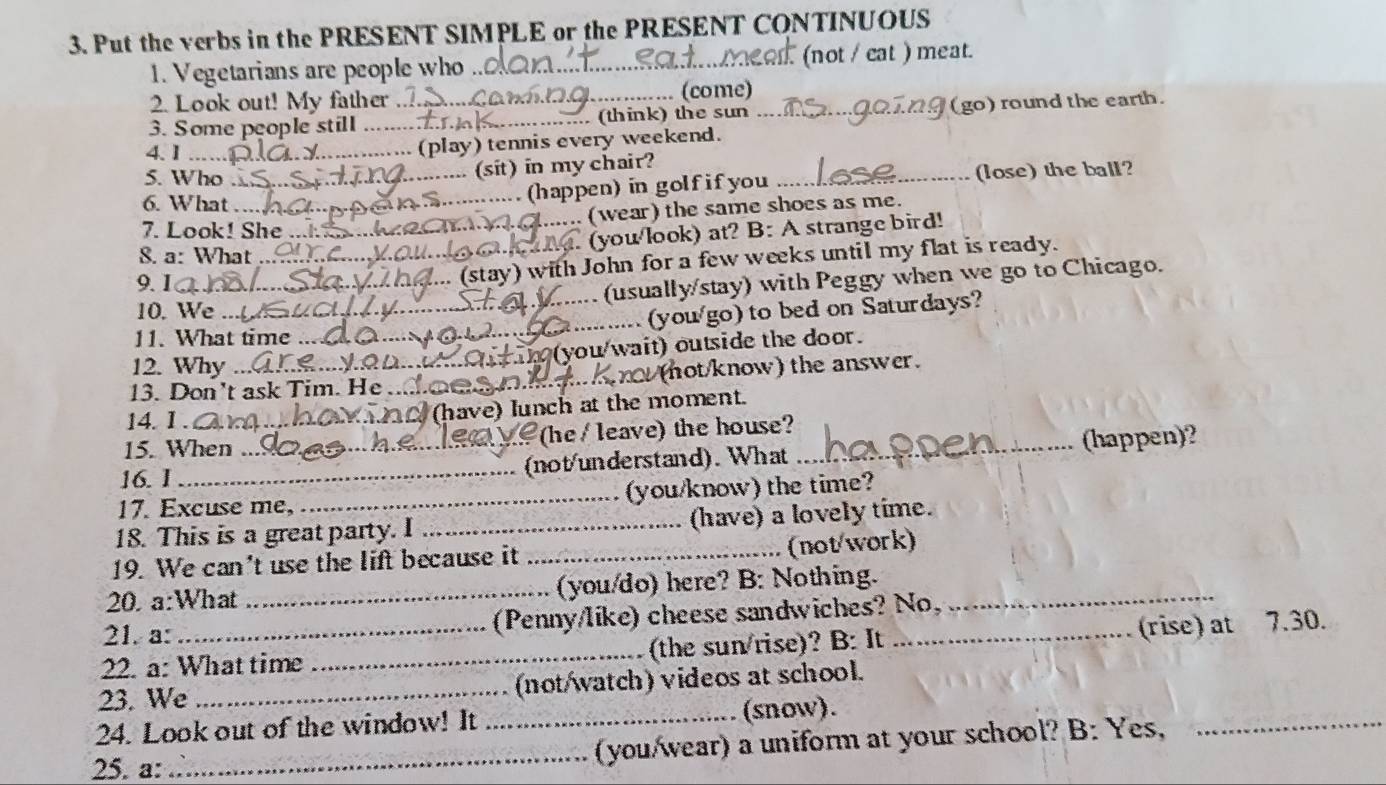 3. Put the verbs in the PRESENT SIMPLE or the PRESENT CONTINUOUS
1. Vegetarians are people who ..dan't eat meat. (not / eat ) meat.
2. Look out! My father ..is caming (come)
3. Some people still ..tink (think) the sun ....is going (go) round the earth.
4. I ......play (play) tennis every weekend.
5. Who .is siting (sit) in my chair?
6. What ....happens (happen) in golf if you ......lose (lose) the ball?
7. Look! She ...is wearing (wear) the same shoes as me.
8. a: What ...are you looking. (you/look) at? B: A strange bird!
9. I Staying (stay) with John for a few weeks until my flat is ready.
10. We ...usually stay (usually/stay) with Peggy when we go to Chicago.
11. What time ....do you go (you/go) to bed on Saturdays?
12. Why ...are you waiting (you/wait) outside the door.
13. Don't ask Tim. He ....doesn't know (not/know) the answer.
14. I .am having (have) lunch at the moment.
15. When ....does he leave (he / leave) the house?
16. I ............ (not/understand). What ....happen (happen)?
17. Excuse me, ............ (you/know) the time?
18. This is a great party. I ............ (have) a lovely time.
19. We can't use the lift because it ............ (not/work)
20. a:What ............ (you/do) here? B: Nothing.
21. a: ............ (Penny/like) cheese sandwiches? No, ............
22. a: What time ............ (the sun/rise)? B: It ............ (rise) at 7.30.
23. We ............ (not/watch) videos at school.
24. Look out of the window! It ............ (snow).
25. a: ............ (you/wear) a uniform at your school? B: Yes, ............